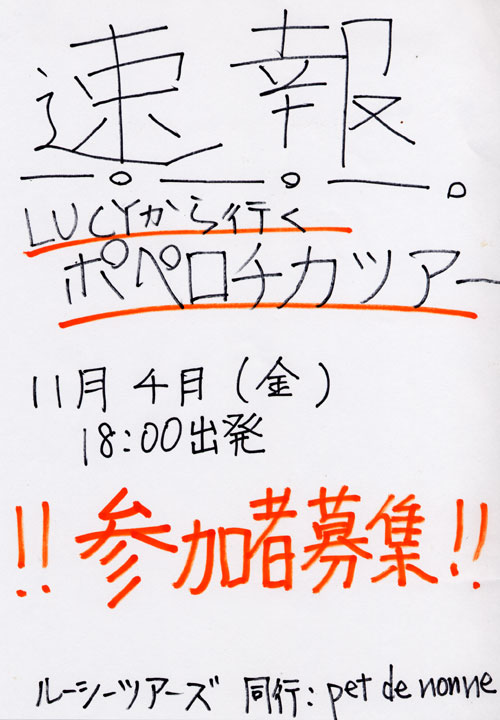 速報
LUCYから行く
ポペロチカツアー
11月4月(金)
18:00出発
!!参加者募集!!
ルーシーツアーズ 同行:pet de nonne